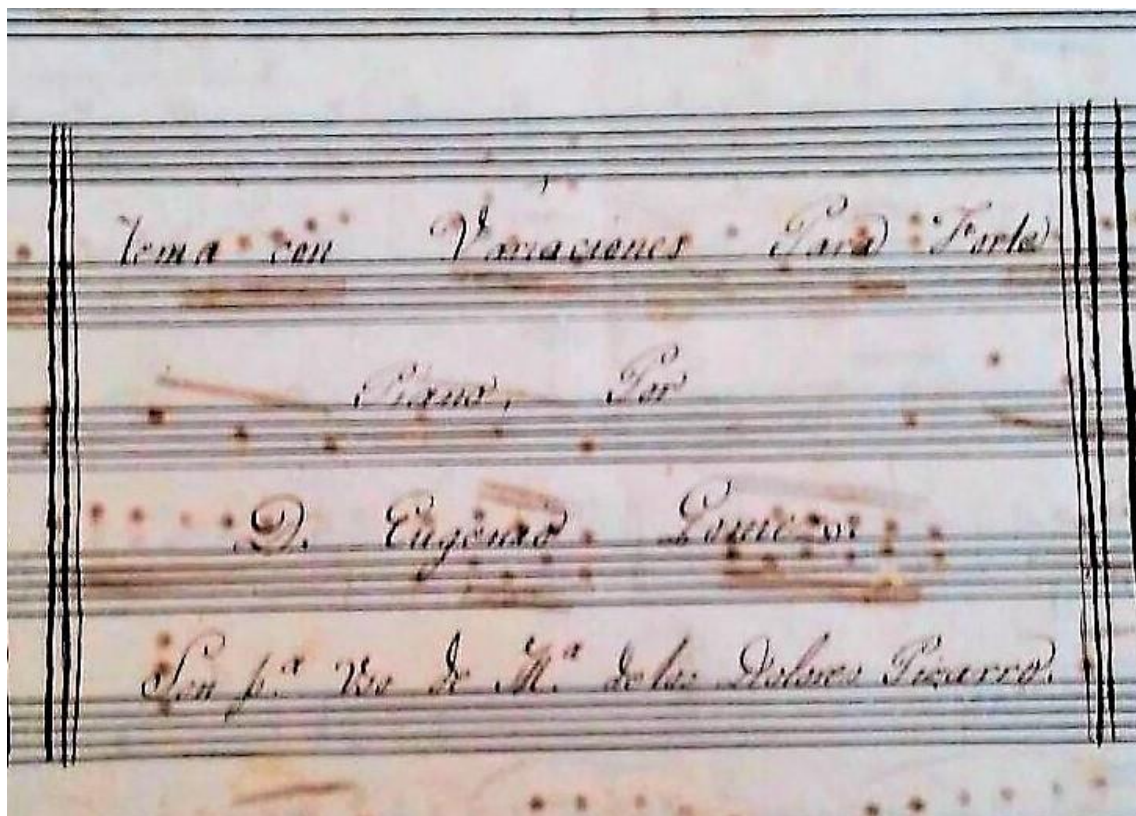 tema con Variaciones Para Forte
Piano, Por
D. Eugenio Gomez.
Son p.ª Uso de M.ª de los Dolores Pizarro.